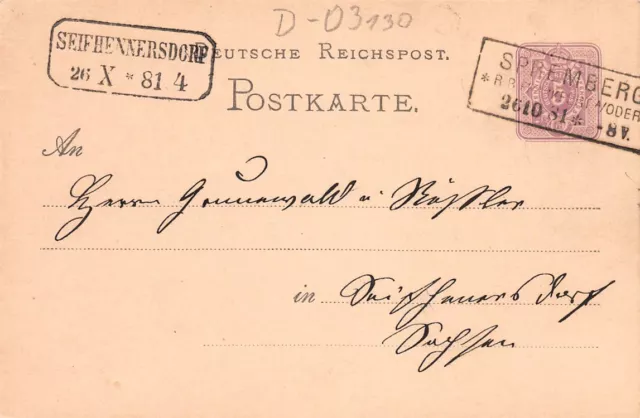 D-03130
SEIFHENNERSDORF
26 X * 81 4
DEUTSCHE REICHSPOST.
POSTKARTE.
SPREMBERG
26 10 81 * -8V.
An
Herrn Grunewald u Rößler
in Seifhennersdorf
Sachsen